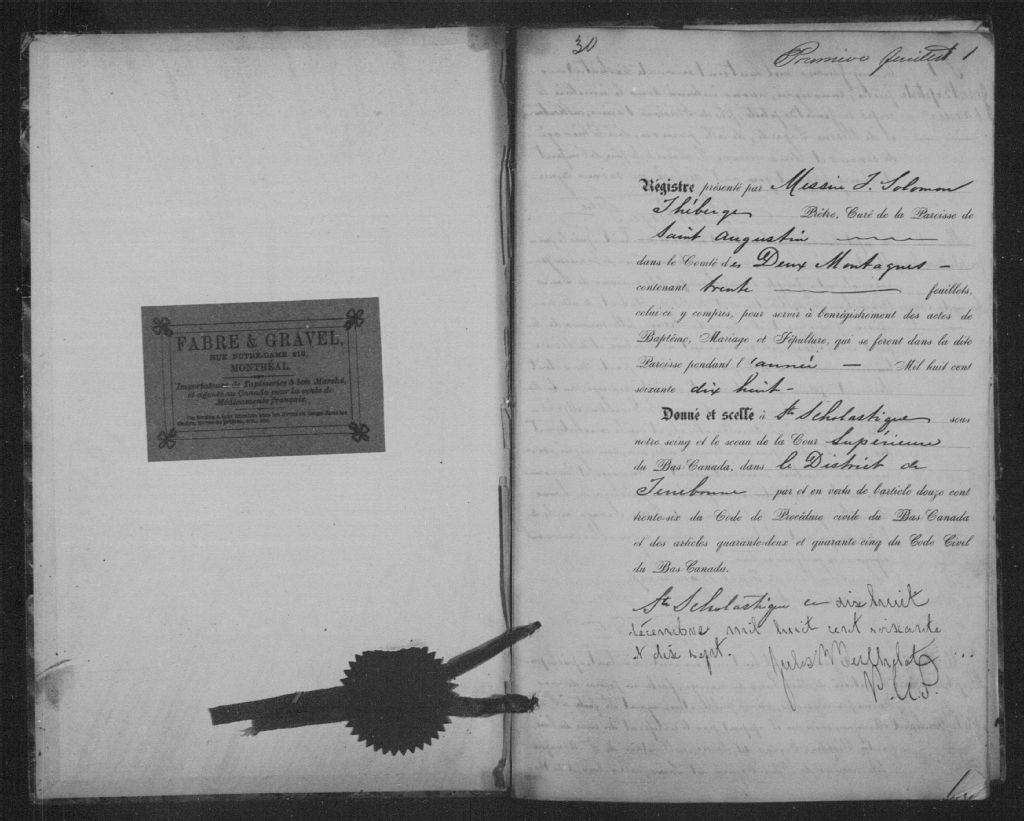 FABRE & GRAVEL,
RUE NOTRE-DAME 219,
MONTRÉAL.
Importateurs de Tapisseries à bon Marché,
et agents au Canada pour la vente de
Médicaments français.
30
Première feuillet 1
Régistre présenté par Messire J. Solomon
Théberge Prêtre, Curé de la Paroisse de
Saint Augustin
dans le Comté des Deux Montagnes —
contenant trente feuillets,
celui-ci y compris, pour servir à l'enrégistrement des actes de
Baptême, Mariage et Sépulture, qui se feront dans la dite
Paroisse pendant l'année — Mil huit cent
soixante dix huit -
Donné et scellé à Ste Scholastique sous
notre seing et le sceau de la Cour Supérieure
du Bas-Canada, dans le District de
Terrebonne par et en vertu de l'article douze cent
trente-six du Code de Procédure civile du Bas-Canada
et des articles quarante-deux et quarante-cinq du Code Civil
du Bas-Canada.
Ste Scholastique ce dix huit
décembre mil huit cent soixante
et dix sept.